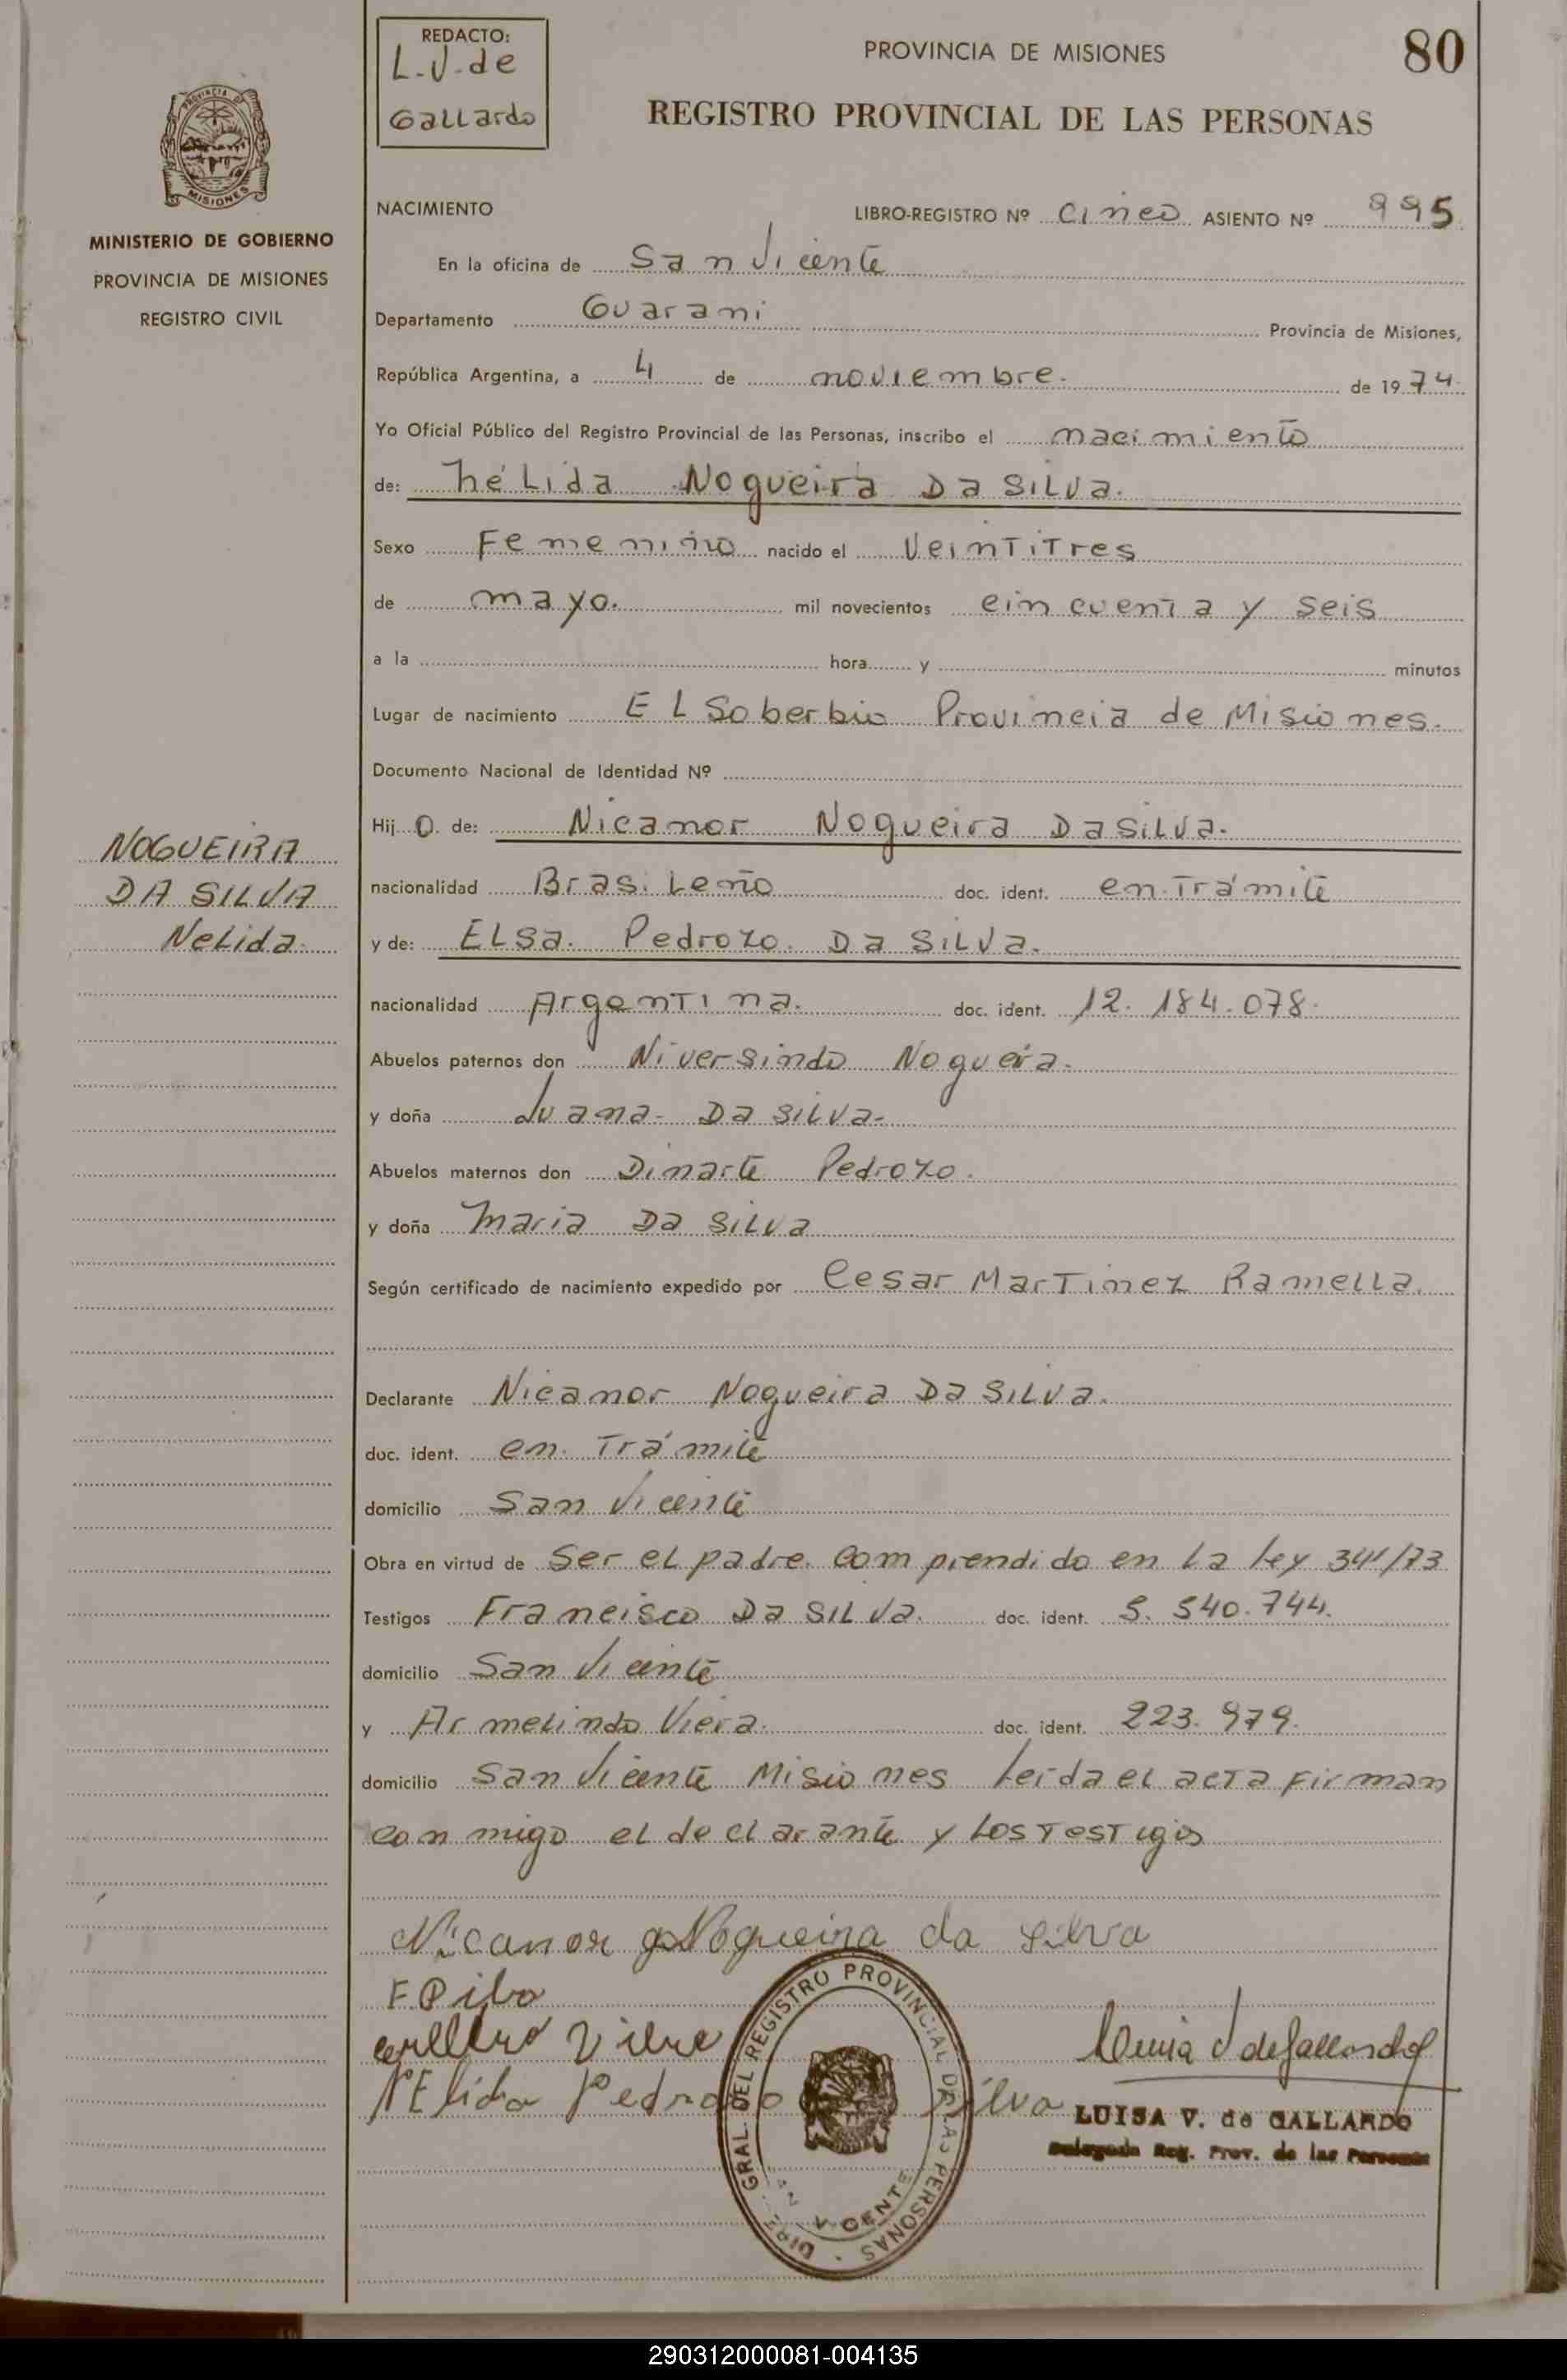 REDACTO:
L. V. de
Gallardo
PROVINCIA DE MISIONES
80
REGISTRO PROVINCIAL DE LAS PERSONAS
MISIONES
MINISTERIO DE GOBIERNO
PROVINCIA DE MISIONES
REGISTRO CIVIL
NACIMIENTO
LIBRO-REGISTRO Nº cinco ASIENTO Nº 995
En la oficina de San Vicente
Departamento Guarani Provincia de Misiones,
República Argentina, a 4 de noviembre. de 1974.
Yo Oficial Público del Registro Provincial de las Personas, inscribo el nacimiento
de: Nélida Nogueira Da Silva.
Sexo Femenino nacido el Veintitres
de mayo. mil novecientos cincuenta y seis
a la hora y minutos
Lugar de nacimiento El Soberbio Provincia de Misiones.
Documento Nacional de Identidad Nº
Hij O. de: Nicanor Nogueira Da Silva.
nacionalidad Brasileño doc. ident. en trámite
y de: Elsa. Pedrozo. Da Silva.
nacionalidad Argentina. doc. ident. 12.184.078.
NOGUEIRA
DA SILVA
Nelida.
Abuelos paternos don Niversindo Nogueira.
y doña Juana Da Silva.
Abuelos maternos don Dinarte Pedrozo.
y doña Maria Da Silva
Según certificado de nacimiento expedido por Cesar Martinez Ramella.
Declarante Nicanor Nogueira Da Silva.
doc. ident. en trámite
domicilio San Vicente
Obra en virtud de Ser el padre. Comprendido en la ley 341/73
Testigos Francisco Da Silva. doc. ident. 5.540.744.
domicilio San Vicente
y Armelindo Viera. doc. ident. 223.979.
domicilio San Vicente Misiones leida el acta firman
conmigo el declarante y los testigos
Nicanor Nogueira da Silva
Nélida Pedrozo Silva
DIRE. GRAL. DEL REGISTRO PROVINCIAL DE LAS PERSONAS
VICENTE
LUISA V. de GALLARDO
Delegada Reg. Prov. de las Personas
290312000081-004135